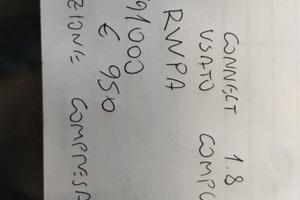 CONNECT 1.8
USATO COMPL
RWPA
91000
€ 950
ZIONE COMPRESA